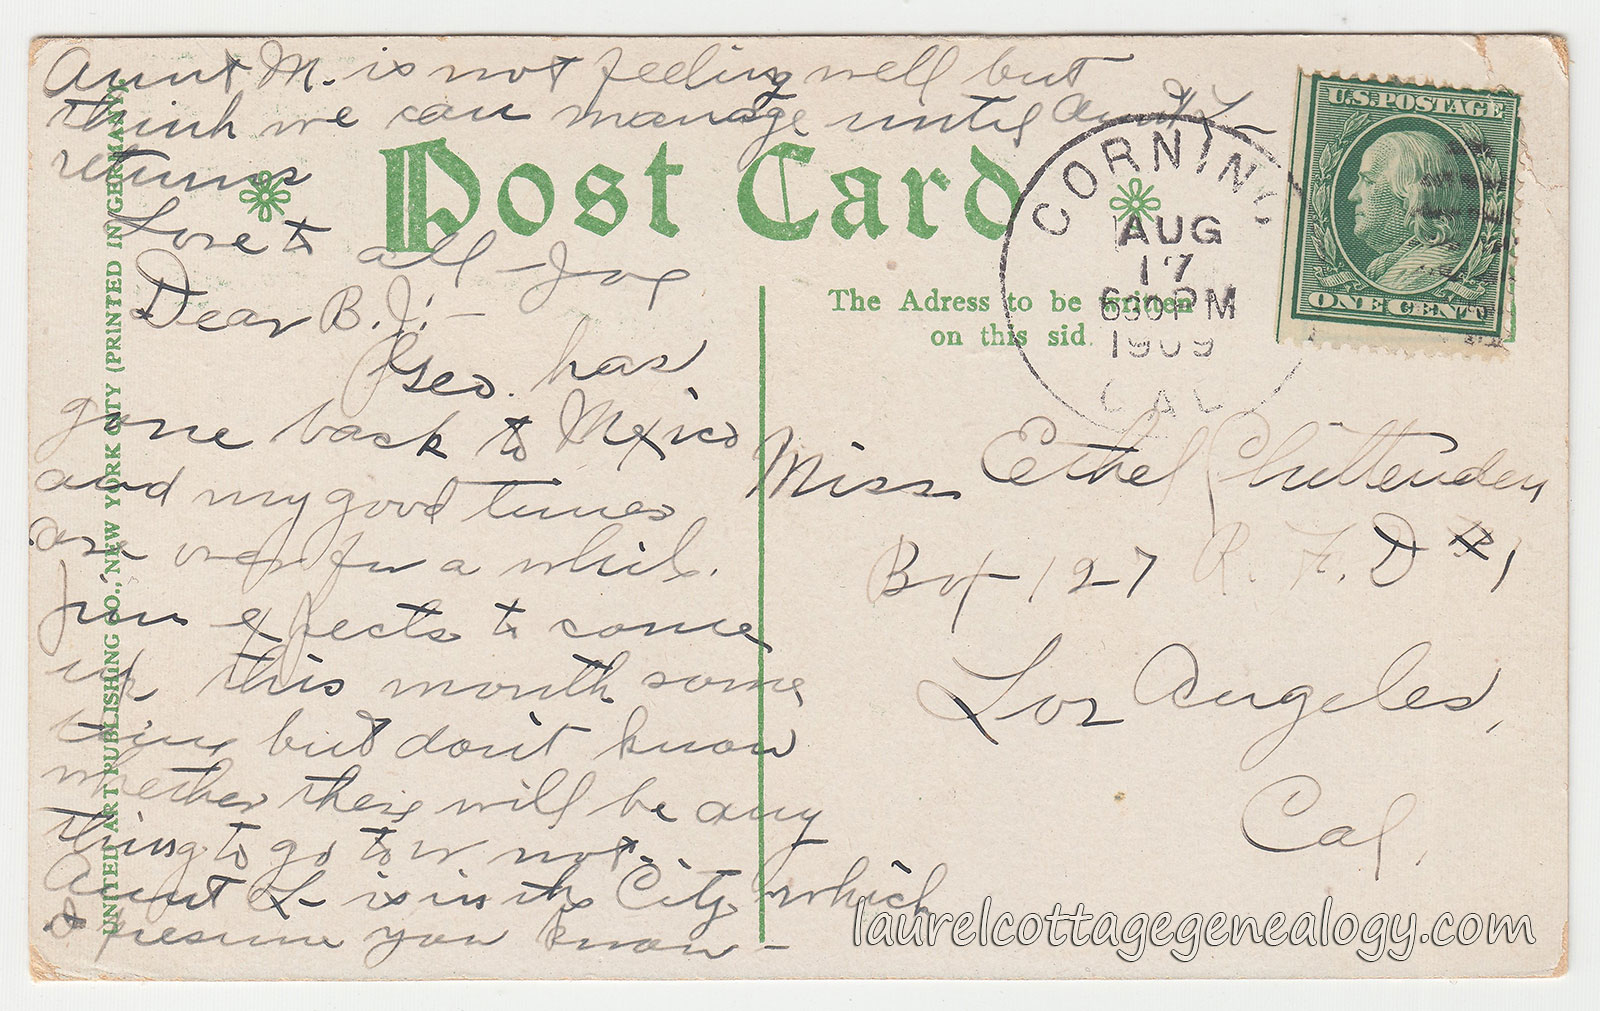 Aunt M. is not feeling well but
think we can manage until Aunt L
returns
Love to
all - Joe
Dear B. J. -
Geo. has
gone back to Mexico
and my good times
are over for a while.
Jim expects to come
up this month some
time but don't know
whether there will be any
thing to go to or not.
Aunt L- is in the City which
I presume you know -
Post Card
The Adress to be written
on this sid
CORNING
AUG
17
630PM
1909
CAL
U.S. POSTAGE
ONE CENT
Miss Ethel Chittenden
Box 127 R. F. D #1
Los Angeles,
Cal.
UNITED ART PUBLISHING CO., NEW YORK CITY (PRINTED IN GERMANY)
laurelcottagegenealogy.com